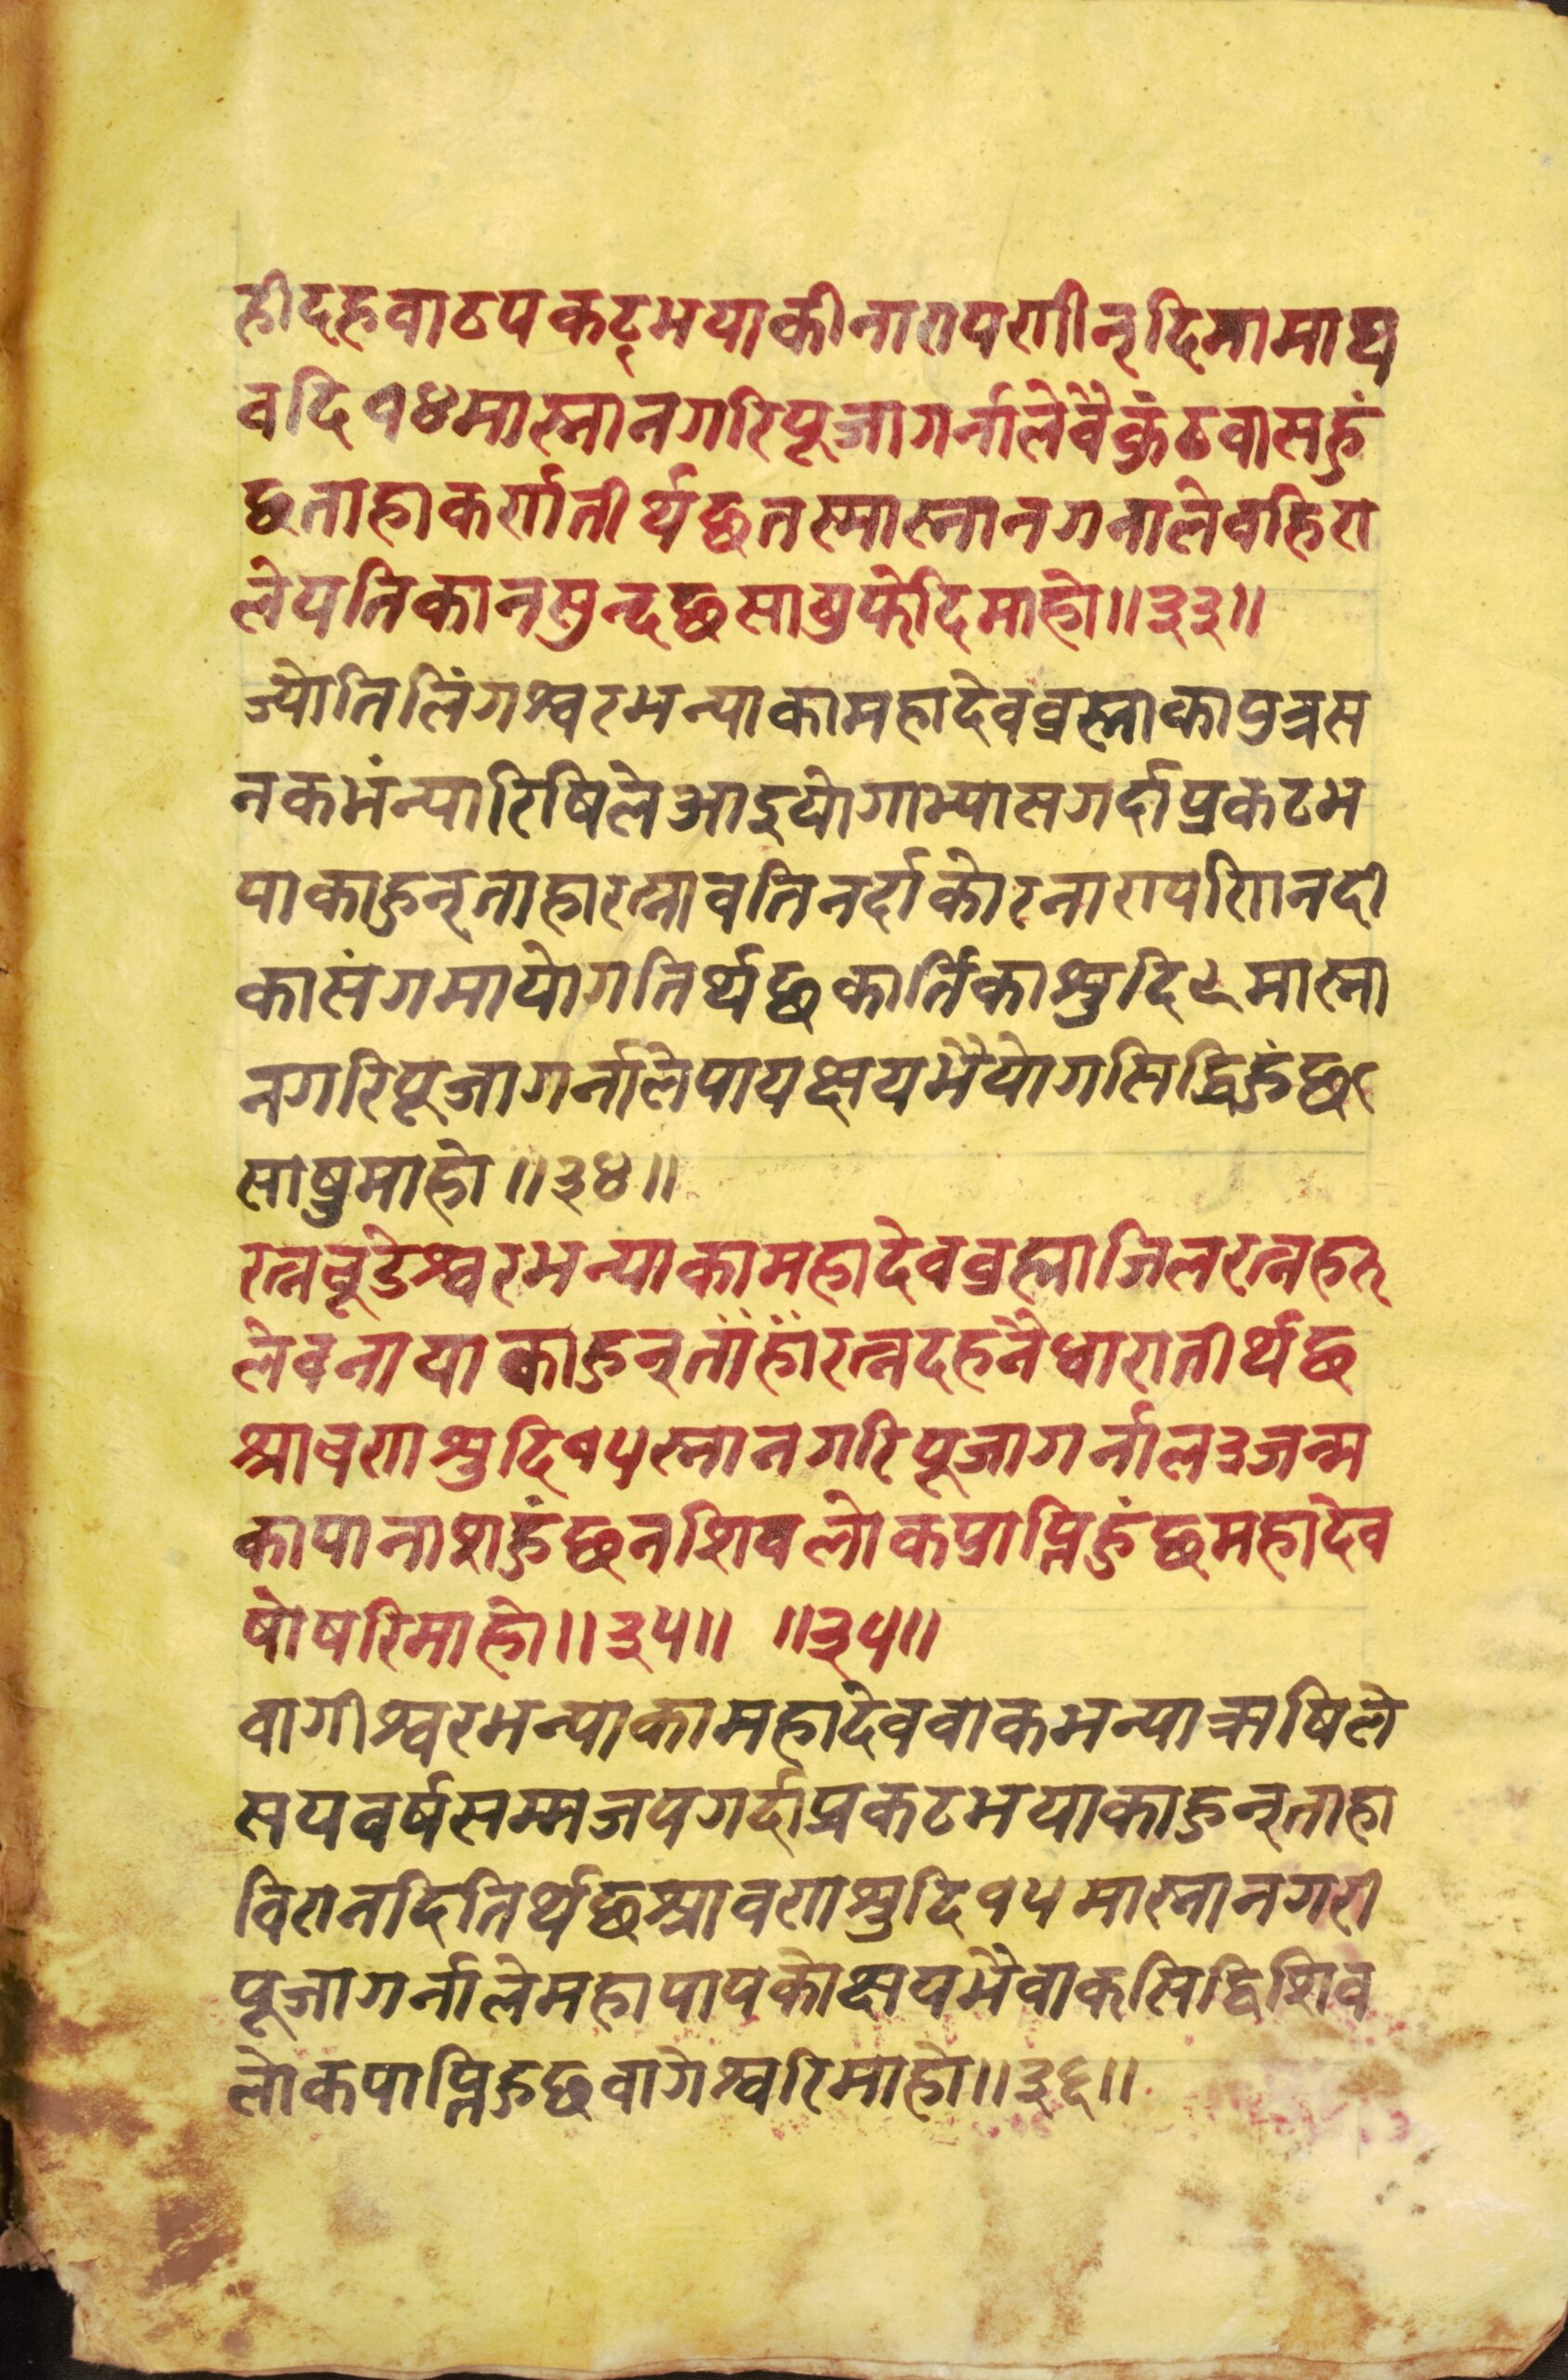 हीदहवाठपकटृभयाकीनारायणीनृदिमामाघ
वदि१४मास्नानगरिपूजागर्नालेवैकुंठवासहुं
छताहाकर्णातीर्थछतस्मास्नानगनालेवहिरा
लेपतिकानसुन्दछसाषुफेदिमाहो॥३३॥
ज्योतिलिंगश्वरभन्याकामहादेवव्रह्माकापुत्रस
नकभंन्यारिषिलेआइयोगाभ्यासगर्दाप्रकटभ
याकाहुनृताहारत्नावतिनर्दाकोरनारायणिनदी
कासंगमायोगतिर्थछकार्तिकाश्रुदि९मास्ना
नगरिपूजागर्नालेपायक्षयभैयोगसिद्धिहुंछ
साषुमाहो॥३४॥
रत्नचूडेश्वरभन्याकामहादेवव्रह्माजिलरत्नहरु
लेवनायाकाहुनृताँहाँरत्नदहनैधारातीर्थछ
श्रावणाश्रुदि१५स्नानगरिपूजागर्नाल३जन्म
कापानाशहुंछनशिवलोकप्राप्तिहुंछमहादेव
षोषरिमाहो॥३५॥ ॥३५॥
वागीश्वरभन्याकामहादेववाकभन्याऋषिले
सयवर्षसम्मजपगर्दाप्रकटभयाकाहुनृताहा
विरानदितिर्थछश्रावणाश्रुदि१५मास्नानगरी
पूजागर्नालेमहापापकोक्षयभैवाकसिद्धिशिव
लोकपाप्तिहुछवागेश्वरिमाहो॥३६॥